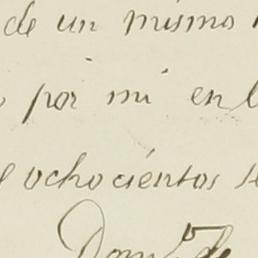 de un mismo
por mi en l
ochocientos se
Dom.º de